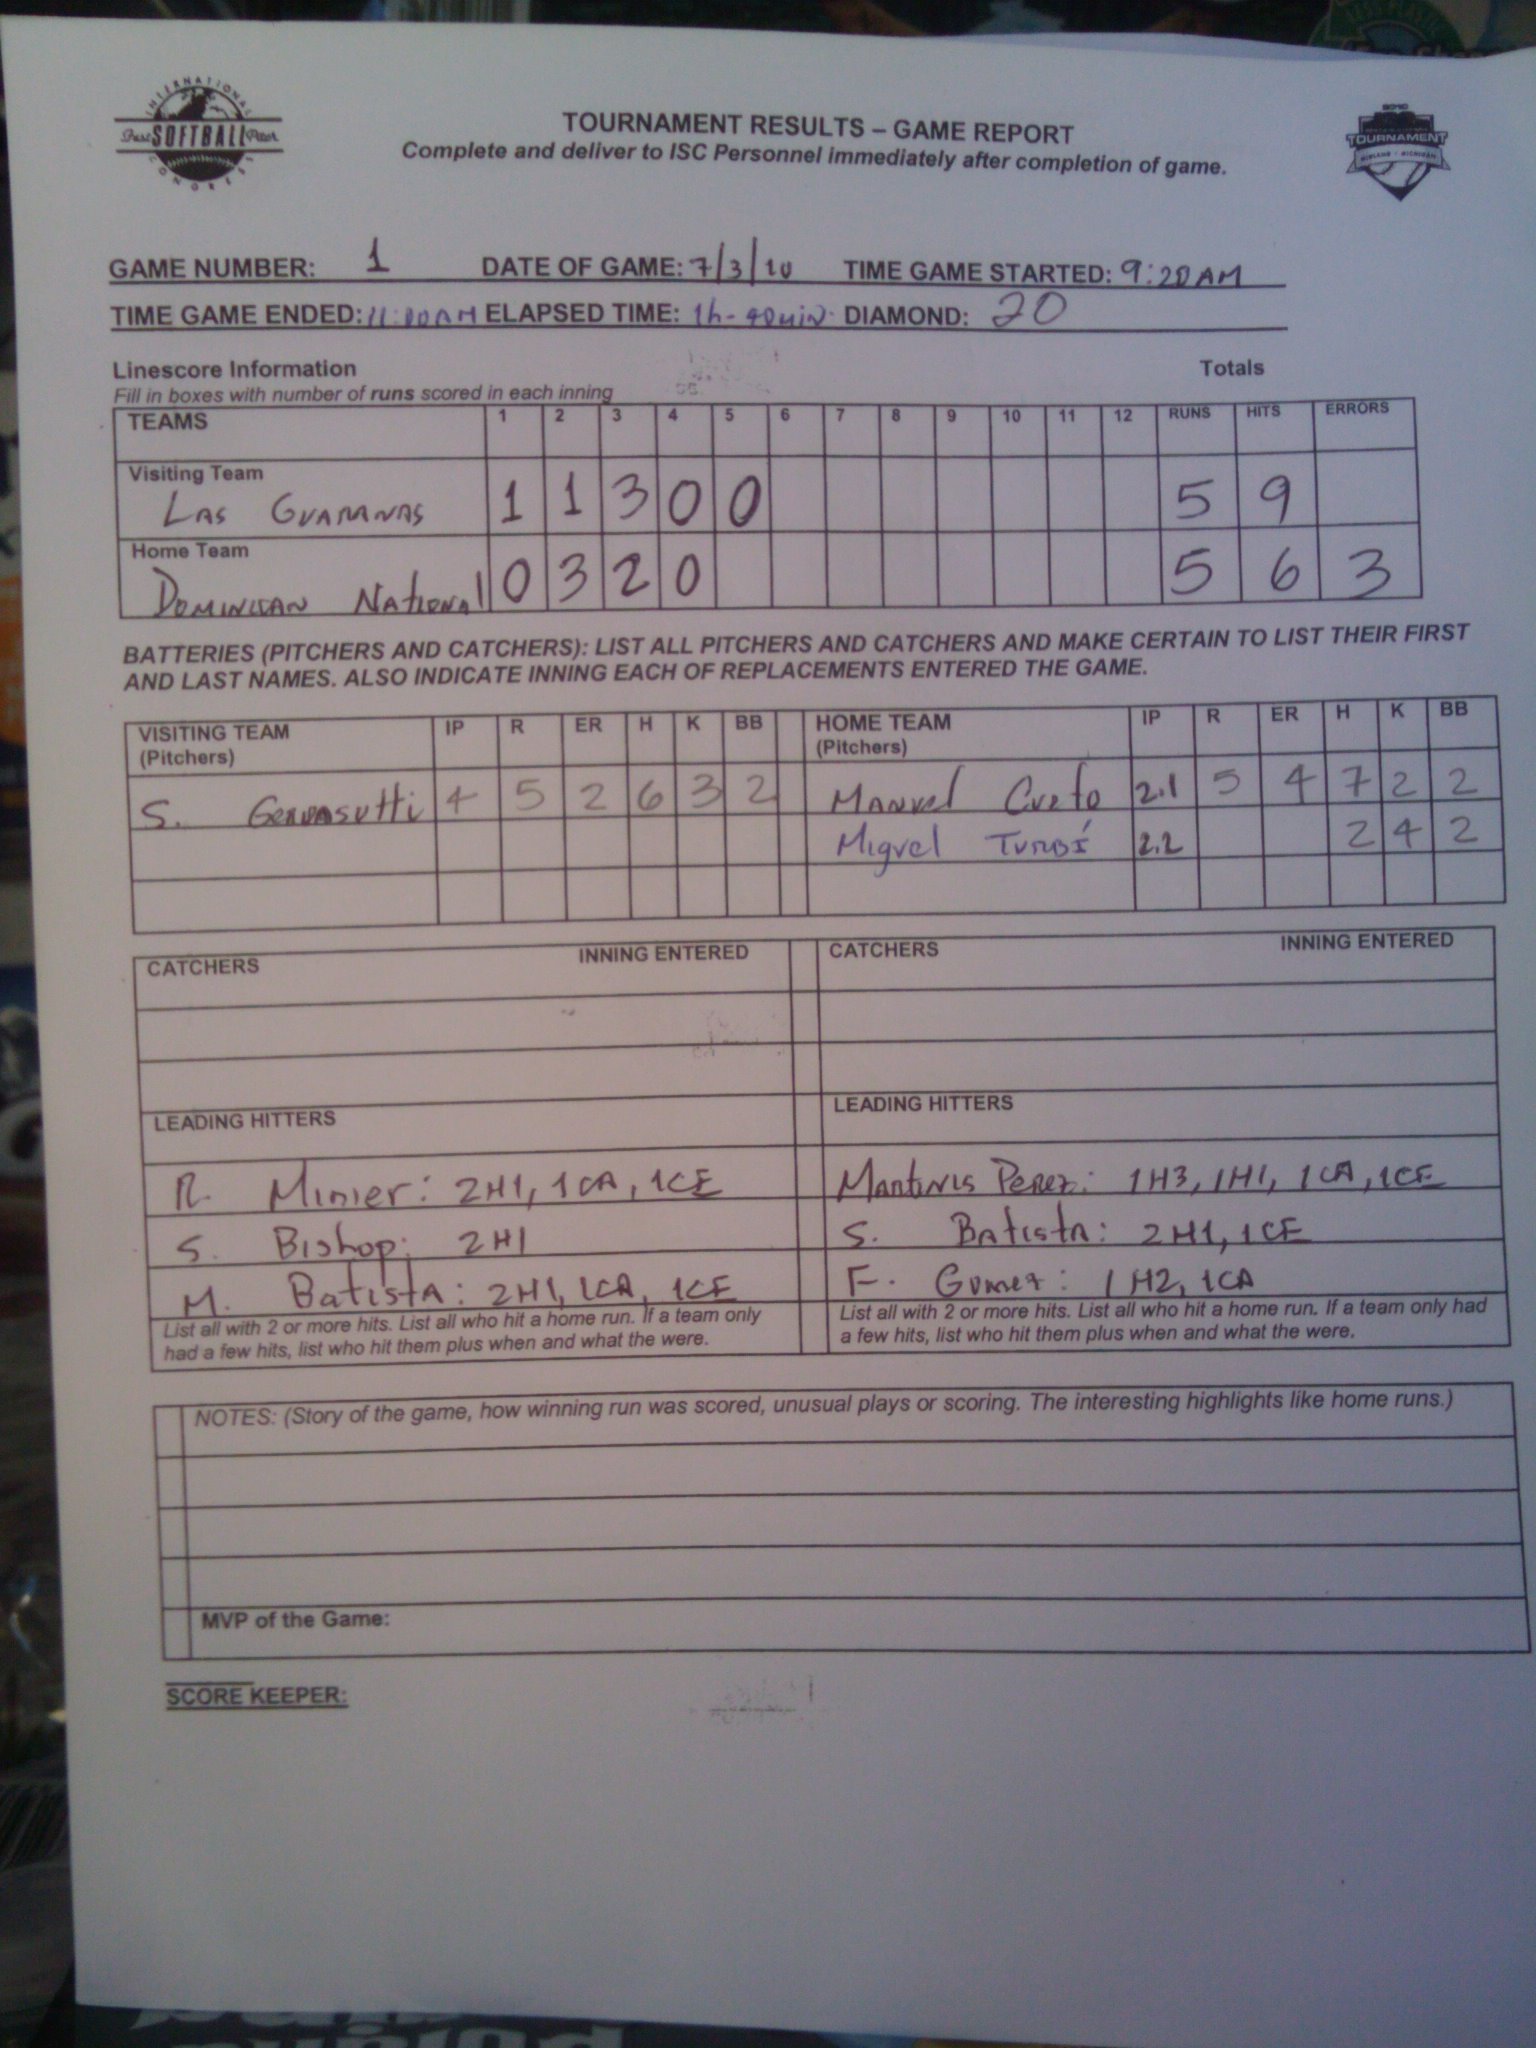 INTERNATIONAL
Fast SOFTBALL Pitch
CONGRESS
2010
TOURNAMENT
MIDLAND - MICHIGAN
TOURNAMENT RESULTS – GAME REPORT
Complete and deliver to ISC Personnel immediately after completion of game.
GAME NUMBER: 1 DATE OF GAME: 7/3/10 TIME GAME STARTED: 9:20AM
TIME GAME ENDED: 11:00AM ELAPSED TIME: 1h-40min. DIAMOND: 20
Linescore Information Totals
Fill in boxes with number of runs scored in each inning
TEAMS 1 2 3 4 5 6 7 8 9 10 11 12 RUNS HITS ERRORS
Visiting Team
LAS GUARANAS 1 1 3 0 0 5 9
Home Team
DOMINICAN NATIONAL 0 3 2 0 5 6 3
BATTERIES (PITCHERS AND CATCHERS): LIST ALL PITCHERS AND CATCHERS AND MAKE CERTAIN TO LIST THEIR FIRST
AND LAST NAMES. ALSO INDICATE INNING EACH OF REPLACEMENTS ENTERED THE GAME.
VISITING TEAM IP R ER H K BB HOME TEAM IP R ER H K BB
(Pitchers) (Pitchers)
S. Gervasutti 4 5 2 6 3 2 Manuel Cueto 2.1 5 4 7 2 2
Miguel Turbí 2.2 2 4 2
CATCHERS INNING ENTERED CATCHERS INNING ENTERED
LEADING HITTERS LEADING HITTERS
R. Minier: 2H1, 1CA, 1CE Martinis Perez: 1H3, 1H1, 1CA, 1CE
S. Bishop: 2H1 S. Batista: 2H1, 1CE
M. Batista: 2H1, 1CA, 1CE F. Gomez: 1H2, 1CA
List all with 2 or more hits. List all who hit a home run. If a team only List all with 2 or more hits. List all who hit a home run. If a team only had
had a few hits, list who hit them plus when and what the were. a few hits, list who hit them plus when and what the were.
NOTES: (Story of the game, how winning run was scored, unusual plays or scoring. The interesting highlights like home runs.)
MVP of the Game:
SCORE KEEPER: